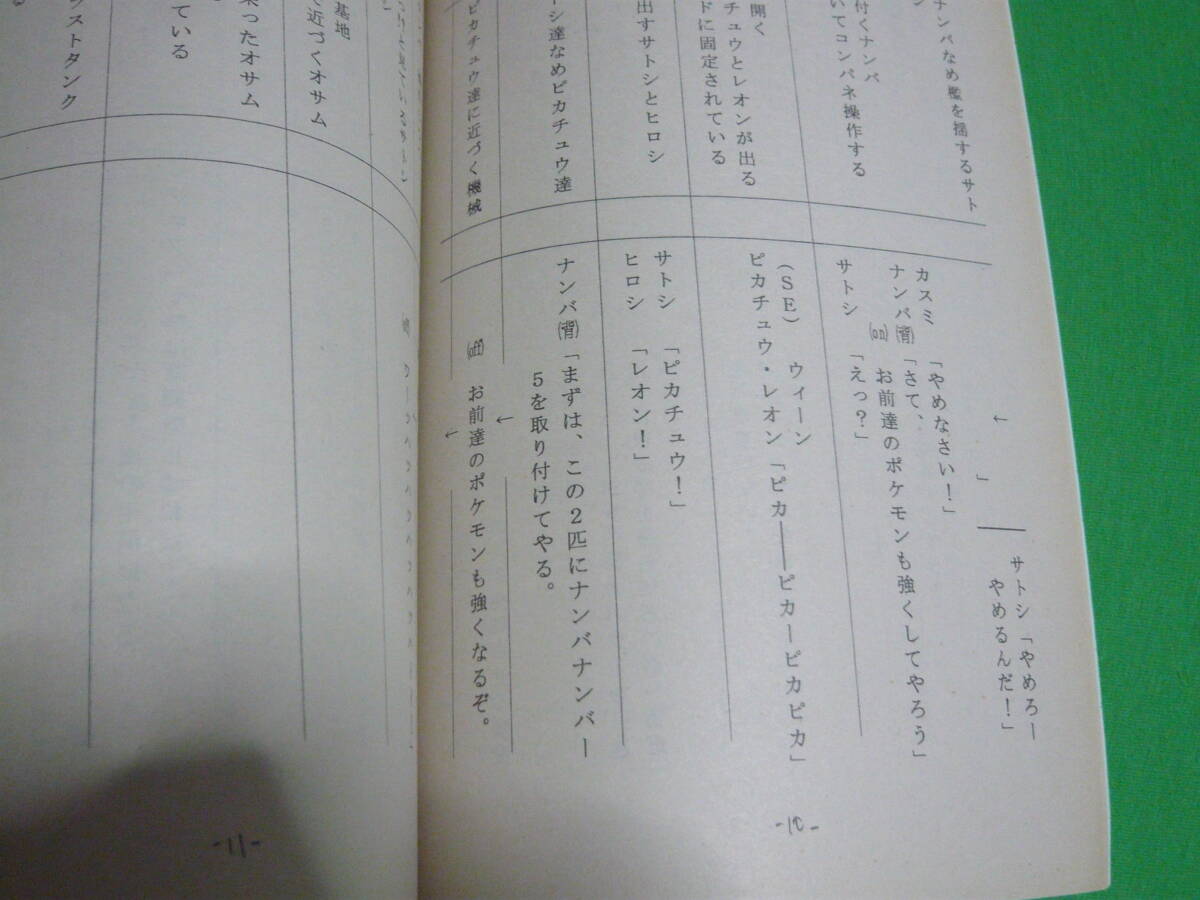 サトシ「やめろー
やめるんだ!」
↓
」
ナンパなめ檻を揺するサト
カスミ 「やめなさい!」
ナンバ(背)「さて、
(on) お前達のポケモンも強くしてやろう」
付くナンバ
いてコンパネ操作する
サトシ 「えっ?」
開く
チュウとレオンが出る
ドに固定されている
(SE) ウィーン
ピカチュウ・レオン「ピカ――ピカーピカピカ」
出すサトシとヒロシ
サトシ 「ピカチュウ!」
ヒロシ 「レオン!」
ーシ達なめピカチュウ達
ナンバ(背)「まずは、この2匹にナンバナンバー
5を取り付けてやる。
↓
ピカチュウ達に近づく機械
(off) お前達のポケモンも強くなるぞ。
↓
-10-
基地
で近づくオサム
乗ったオサム
ている
ストタンク
-11-